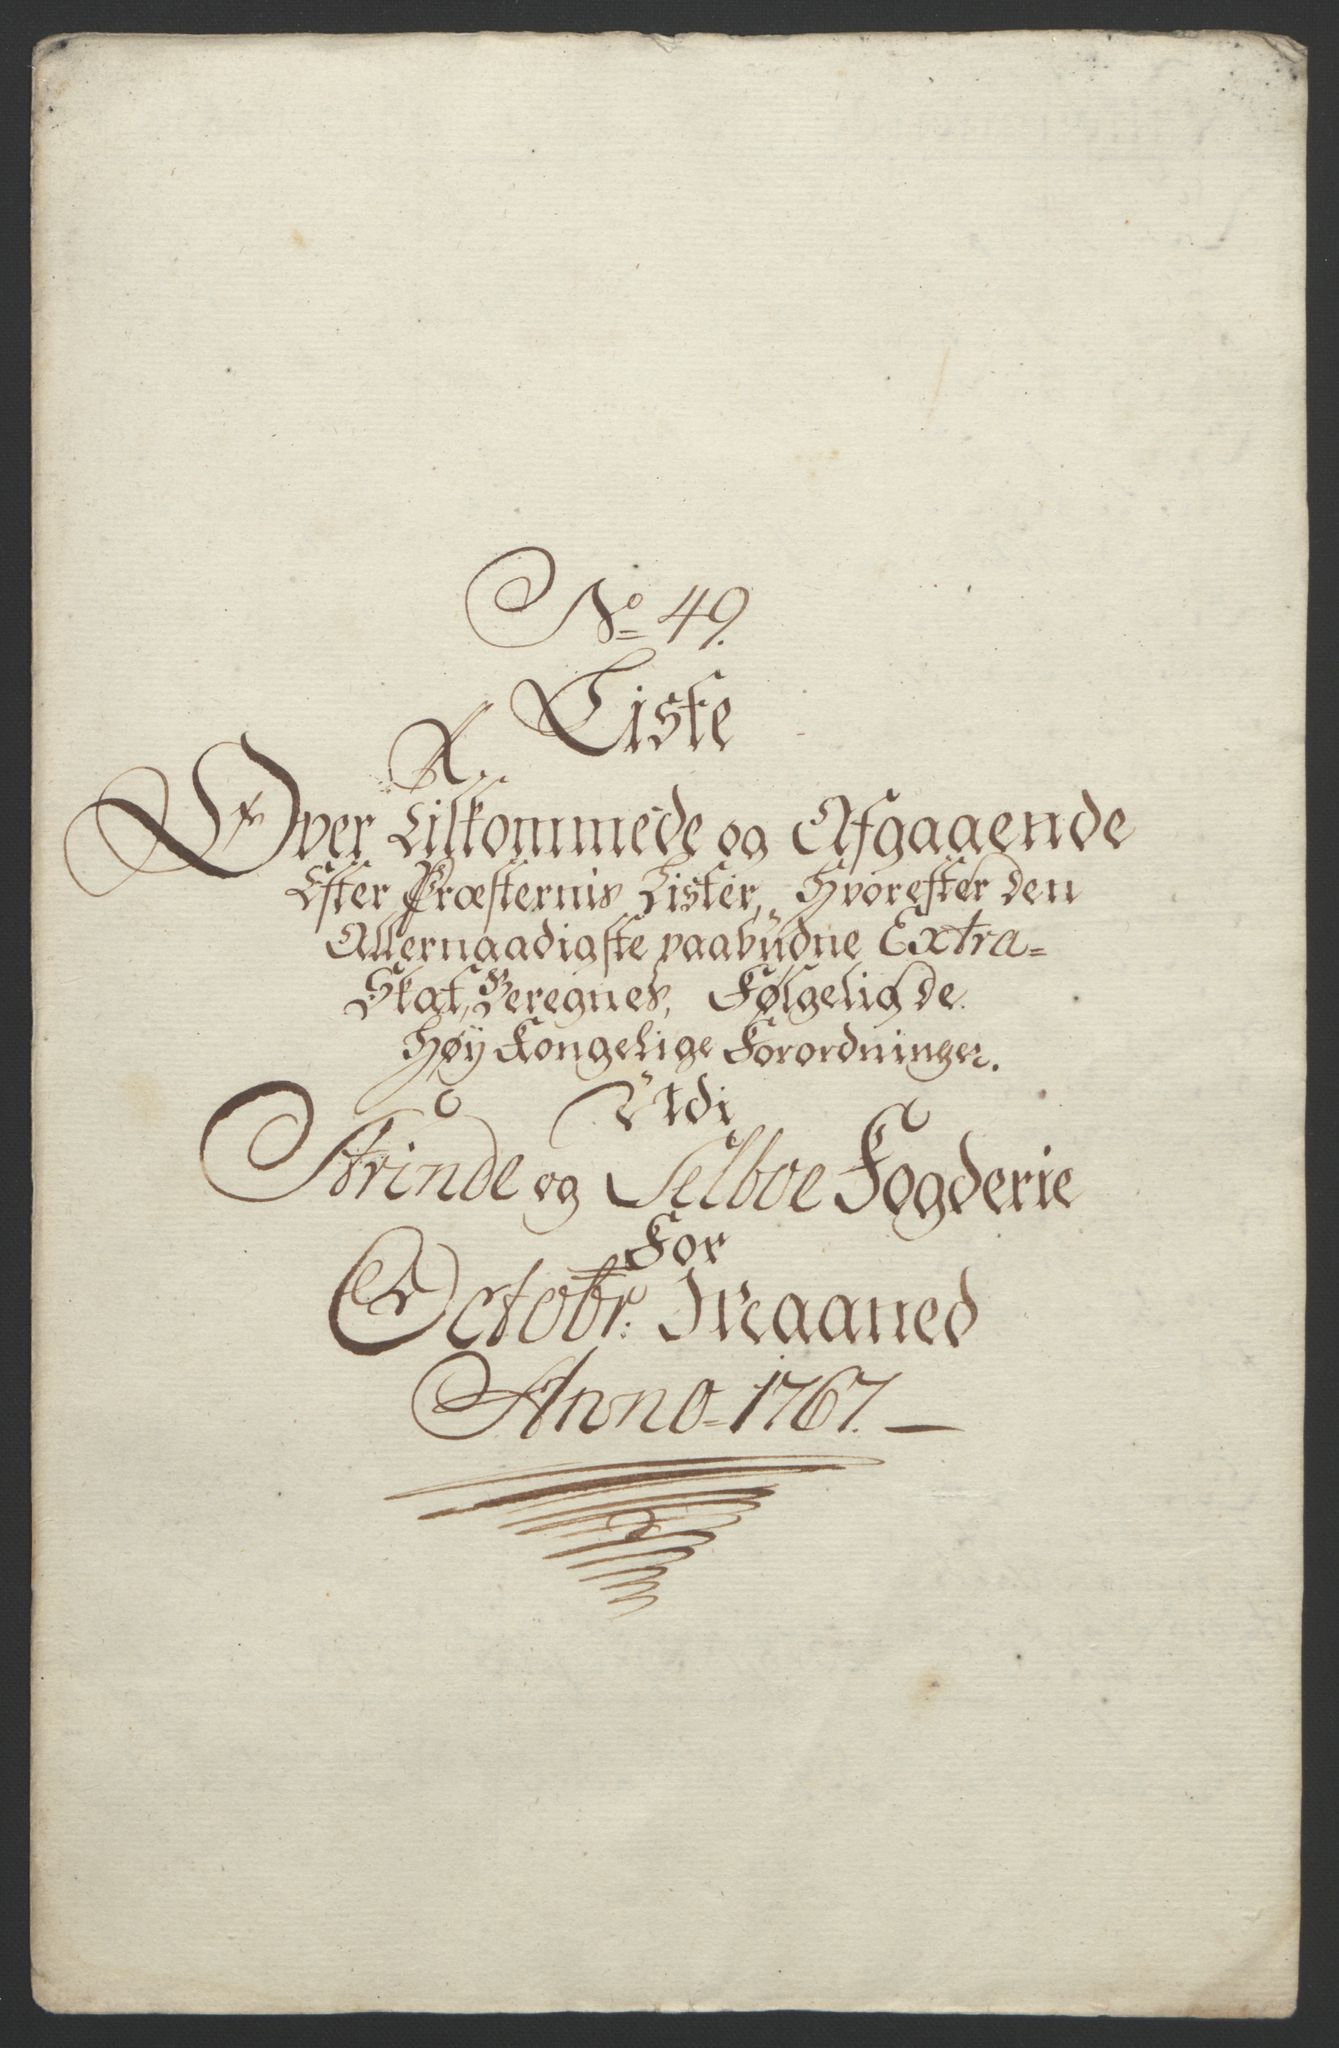 No 49.
Liste
Over Tilkommede og Afgagende
Efter Præsternis Lister, Hvorefter den
Allernaadigste paabudne Extra-
Skat, Beregnes, Følgelig de
Høy Kongelige Forordninger.
Udi
Strinde og Selboe Fogderie
For
Octobr: Maaned
Anno 1767.